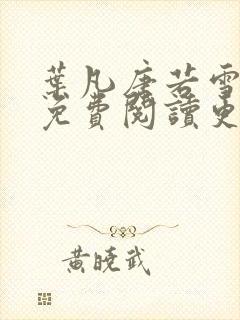 葉凡唐若雪
免費閱讀更
黃曉武